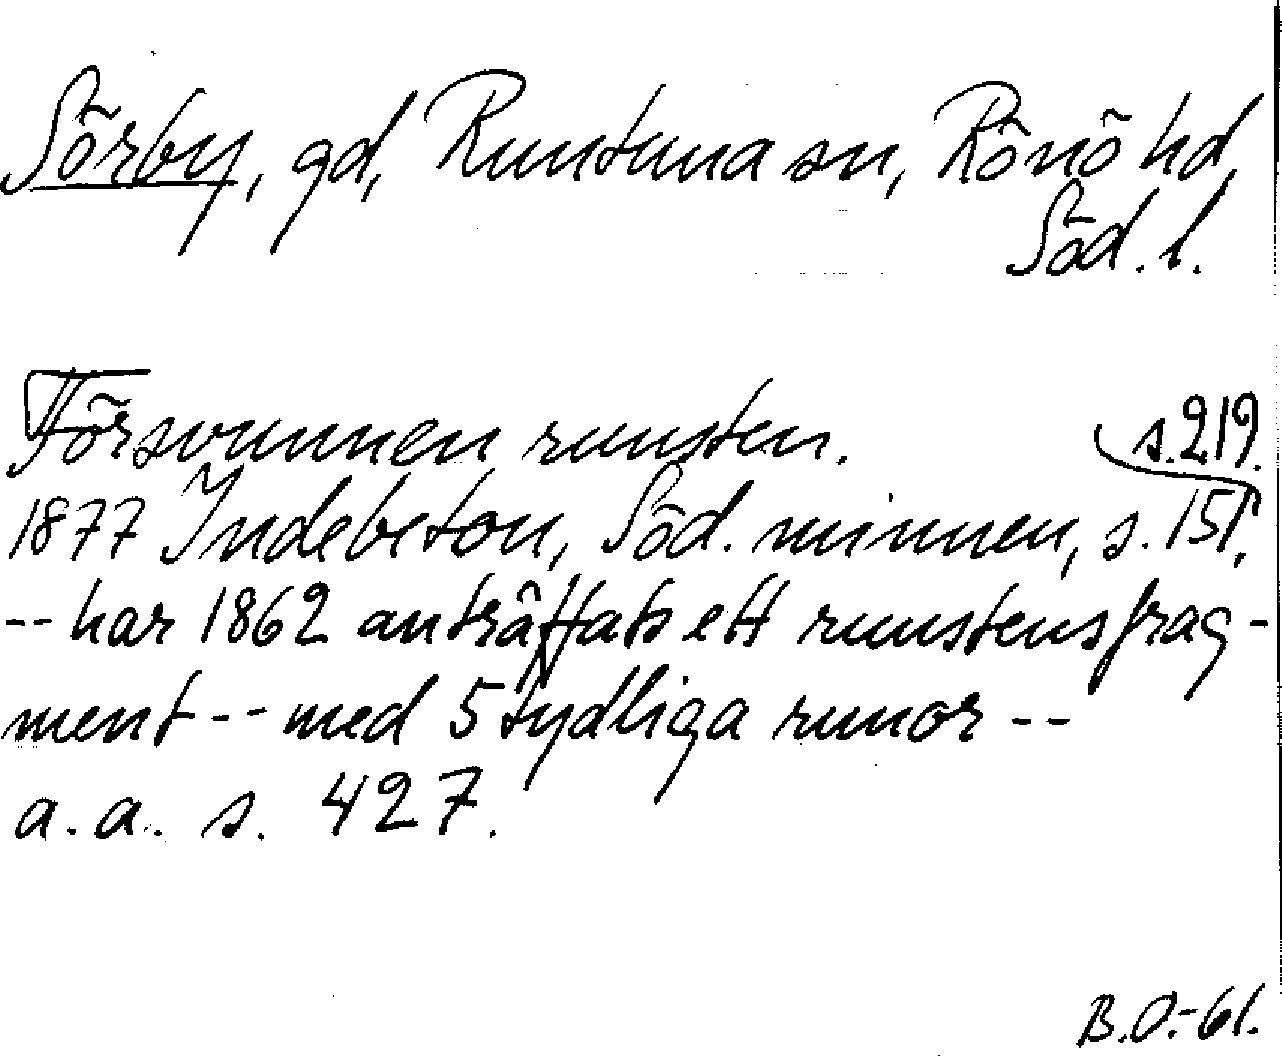 Sörby, gd, Runtuna sn, Rönö hd,
Söd. l.
Försvunnen runsten.
s. 219.
1877 Indebetou, Söd. minnen, s. 151,
-- har 1862 anträffats ett runstensfrag-
ment -- med 5 tydliga runor --
a. a. s. 427.
B.O.-61.